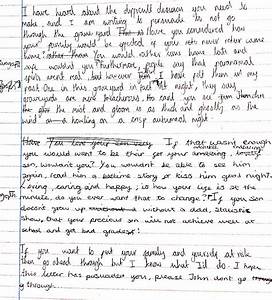 I have heard about the difficult decision you need to
make, and I am writing to persuade to not go
through the grave yard. Have you considered "how
your family would be affected if you left never return came
home rather than You would rather come home late and
safe wouldn't you? Furthermore, people say that paranormal
spirits aren't real but however I have felt them in my
past. One in this graveyard in past at night, they say
graveyards are now treacherous. Ho and you see Jhon don
like the mist and gloom as as thick and ghostly as the
wind a howling on a crisp autumnal night.
Have You love your son very If that wasn't enough
you would want to be their for your amazing,
son, wouldn't you? You wouldn't be able to see him
again, read him a bedtime story or kiss him good night.
Loving, caring and happy, is how your life is at the
minute, do you ever want that to change? If you son
doesn't grow up without a dad, statistics
show, that your precious son will not achieve well at
school and get bad grades!
If you want to put your family and yourself at risk
then go ahead though but I know what I'd do. I hope
this letter has persuaded you, please John don't go
through.